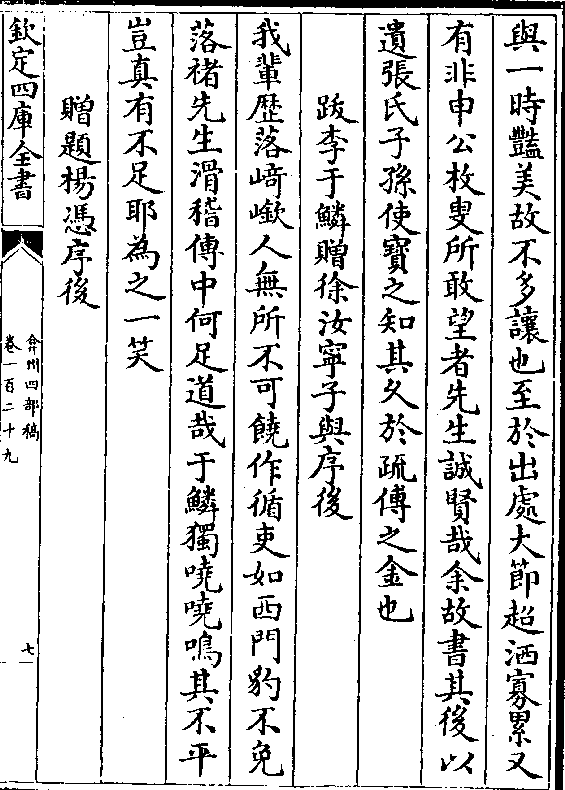 與一時豔美故不多讓也至於出處大節超洒寡累又
有非申公枚叟所敢望者先生誠賢哉余故書其後以
遺張氏子孫使寶之知其久於疏傅之金也
跋李于鱗贈徐汝寧子與序後
我輩歴落﨑嶔人無所不可饒作循吏如西門豹不免
落褚先生滑稽傳中何足道哉于鱗獨嘵嘵鳴其不平
豈真有不足耶為之一笑
贈題楊憑序後
欽定四庫全書
弇州四部稿
卷一百二十九
七